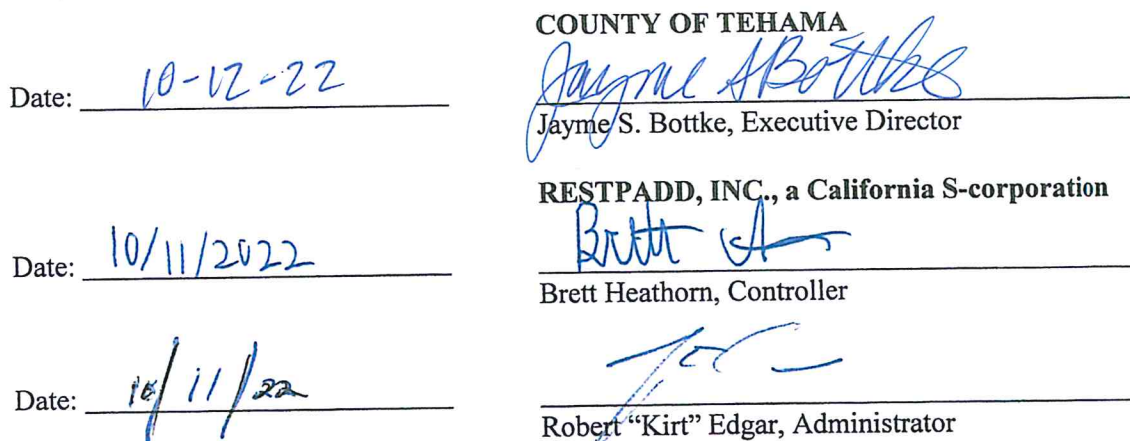 COUNTY OF TEHAMA
Date: 10-12-22 Jayme S Bottke
Jayme S. Bottke, Executive Director
RESTPADD, INC., a California S-corporation
Date: 10/11/2022 Brett
Brett Heathorn, Controller
Date: 10/11/22
Robert “Kirt” Edgar, Administrator